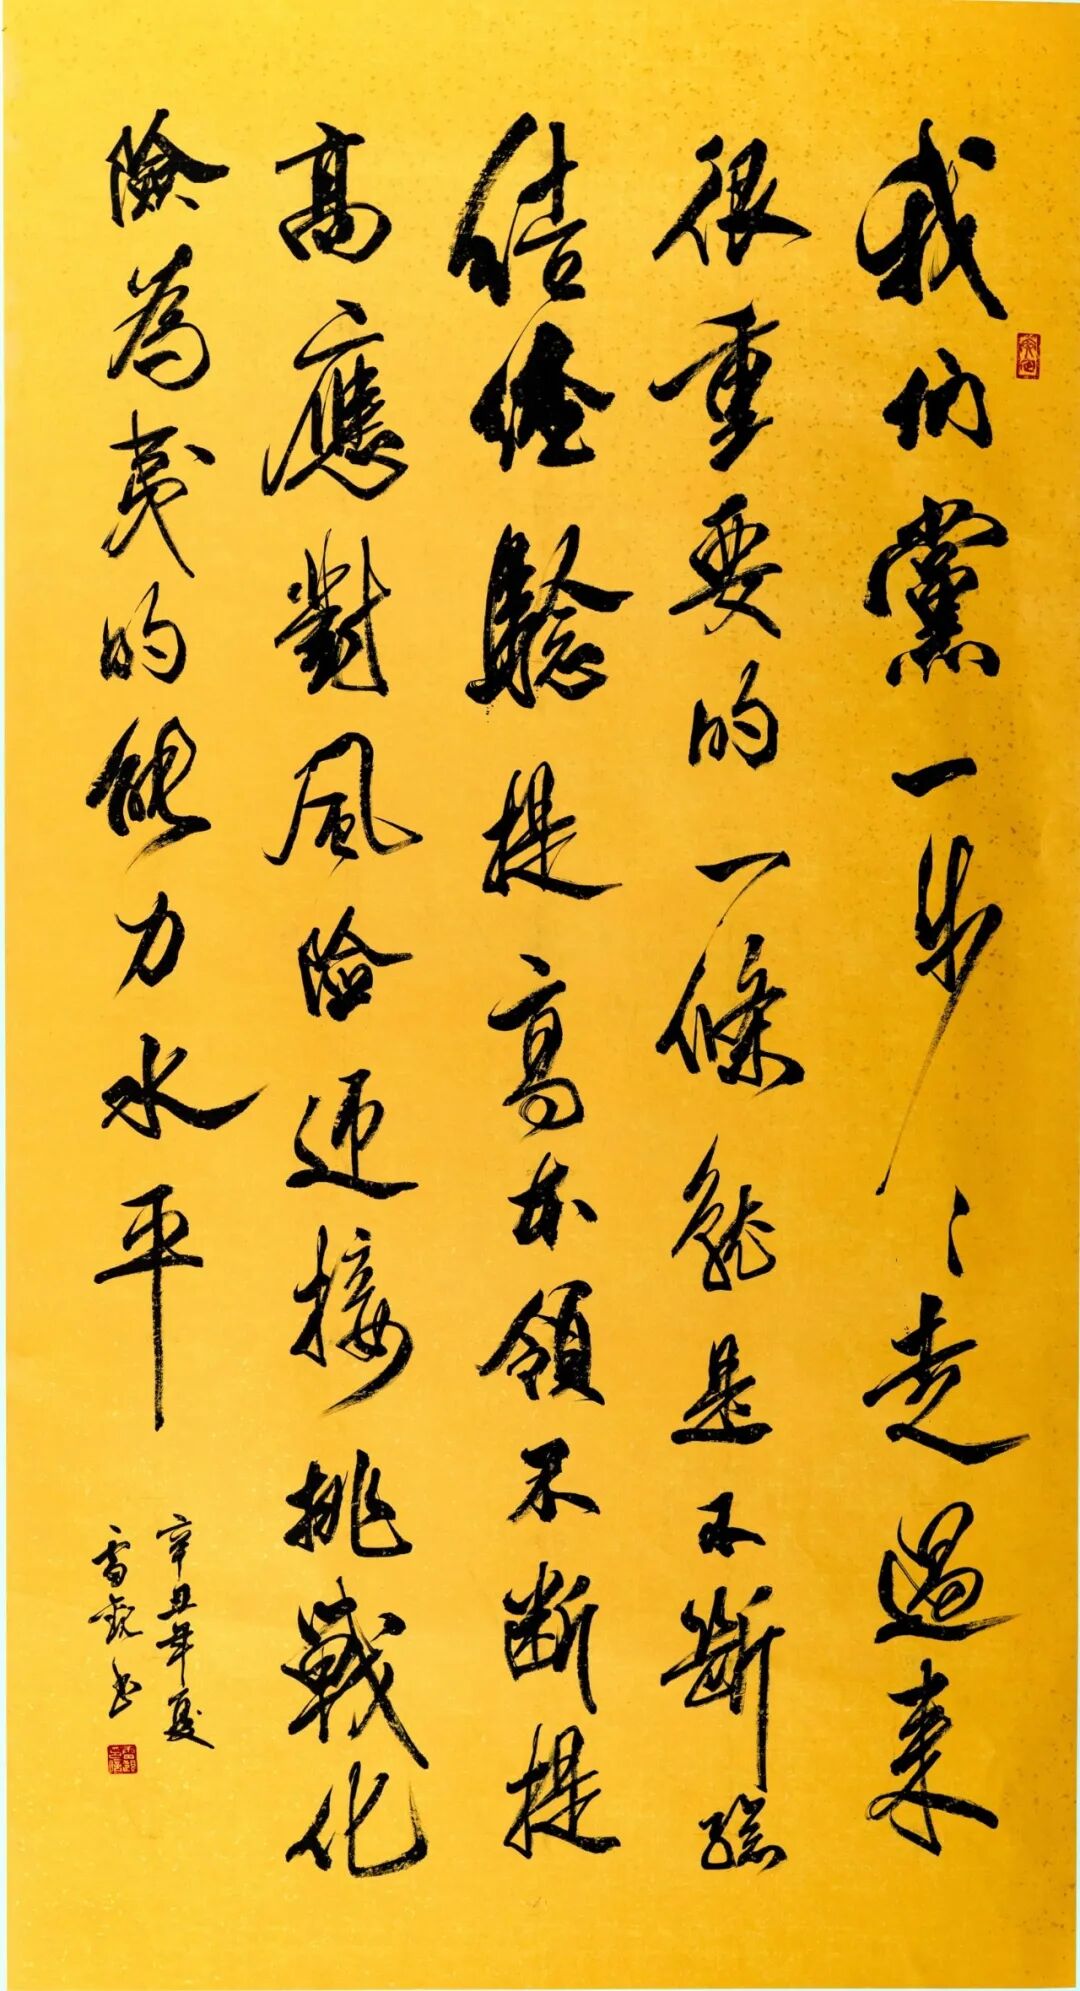 我们黨一步〻走過来
很重要的一條就是不斷總
结经驗提高本領不断提
高應對風险迎接挑戰化
險為夷的能力水平
辛丑年夏
雷书